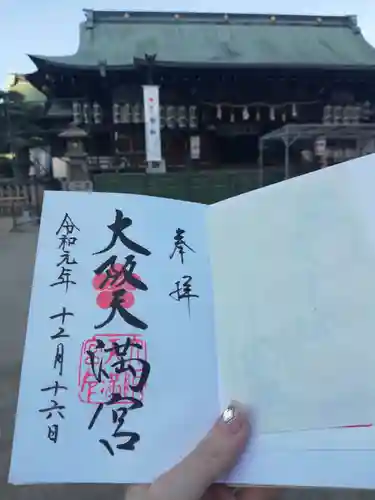 奉拝
大阪天満宮
令和元年十二月十六日